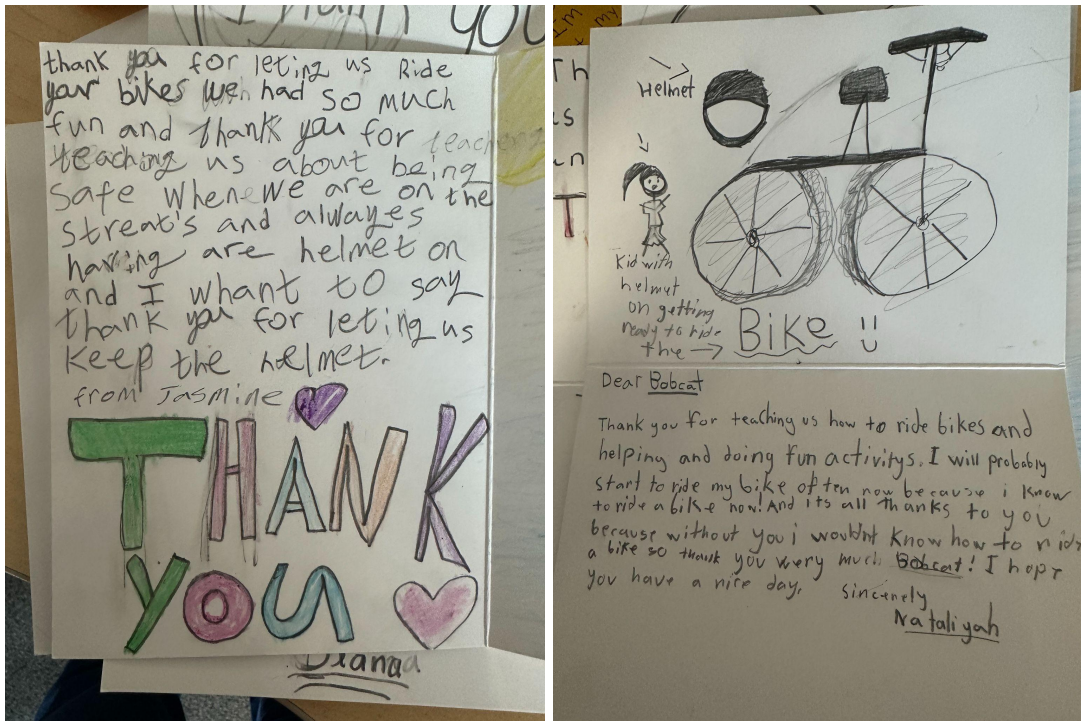 thank you for leting us Ride
your bikes we had so much
fun and thank you for teaching
teaching us about being
safe when we are on the
streat's and alwayes
having are helmet on
and I whant to say
thank you for leting us
keep the helmet.
from Jasmine
THANK
YOU
Diana
Helmet
Kid with
helmut
on getting
ready to ride
the → BikE
Dear Bobcat
Thank you for teaching us how to ride bikes and
helping and doing fun activitys. I will probably
start to ride my bike often now because i know
to ride a bike now! And its all thanks to you
because without you i wouldnt know how to ride
a bike so thank you wery much Bobcat! I hope
you have a nice day.
sincerely
Nataliyah